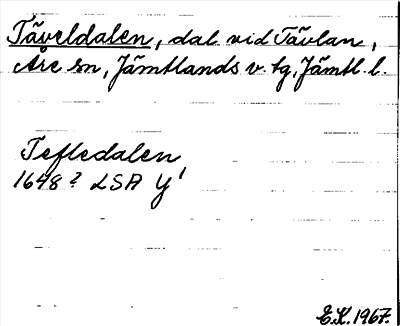 Täveldalen, dal vid Tävlan,
Åre sn, Jämtlands v. tg, Jämtl. l.
Tefledalen
1648? LSA Y¹
E.K. 1967.